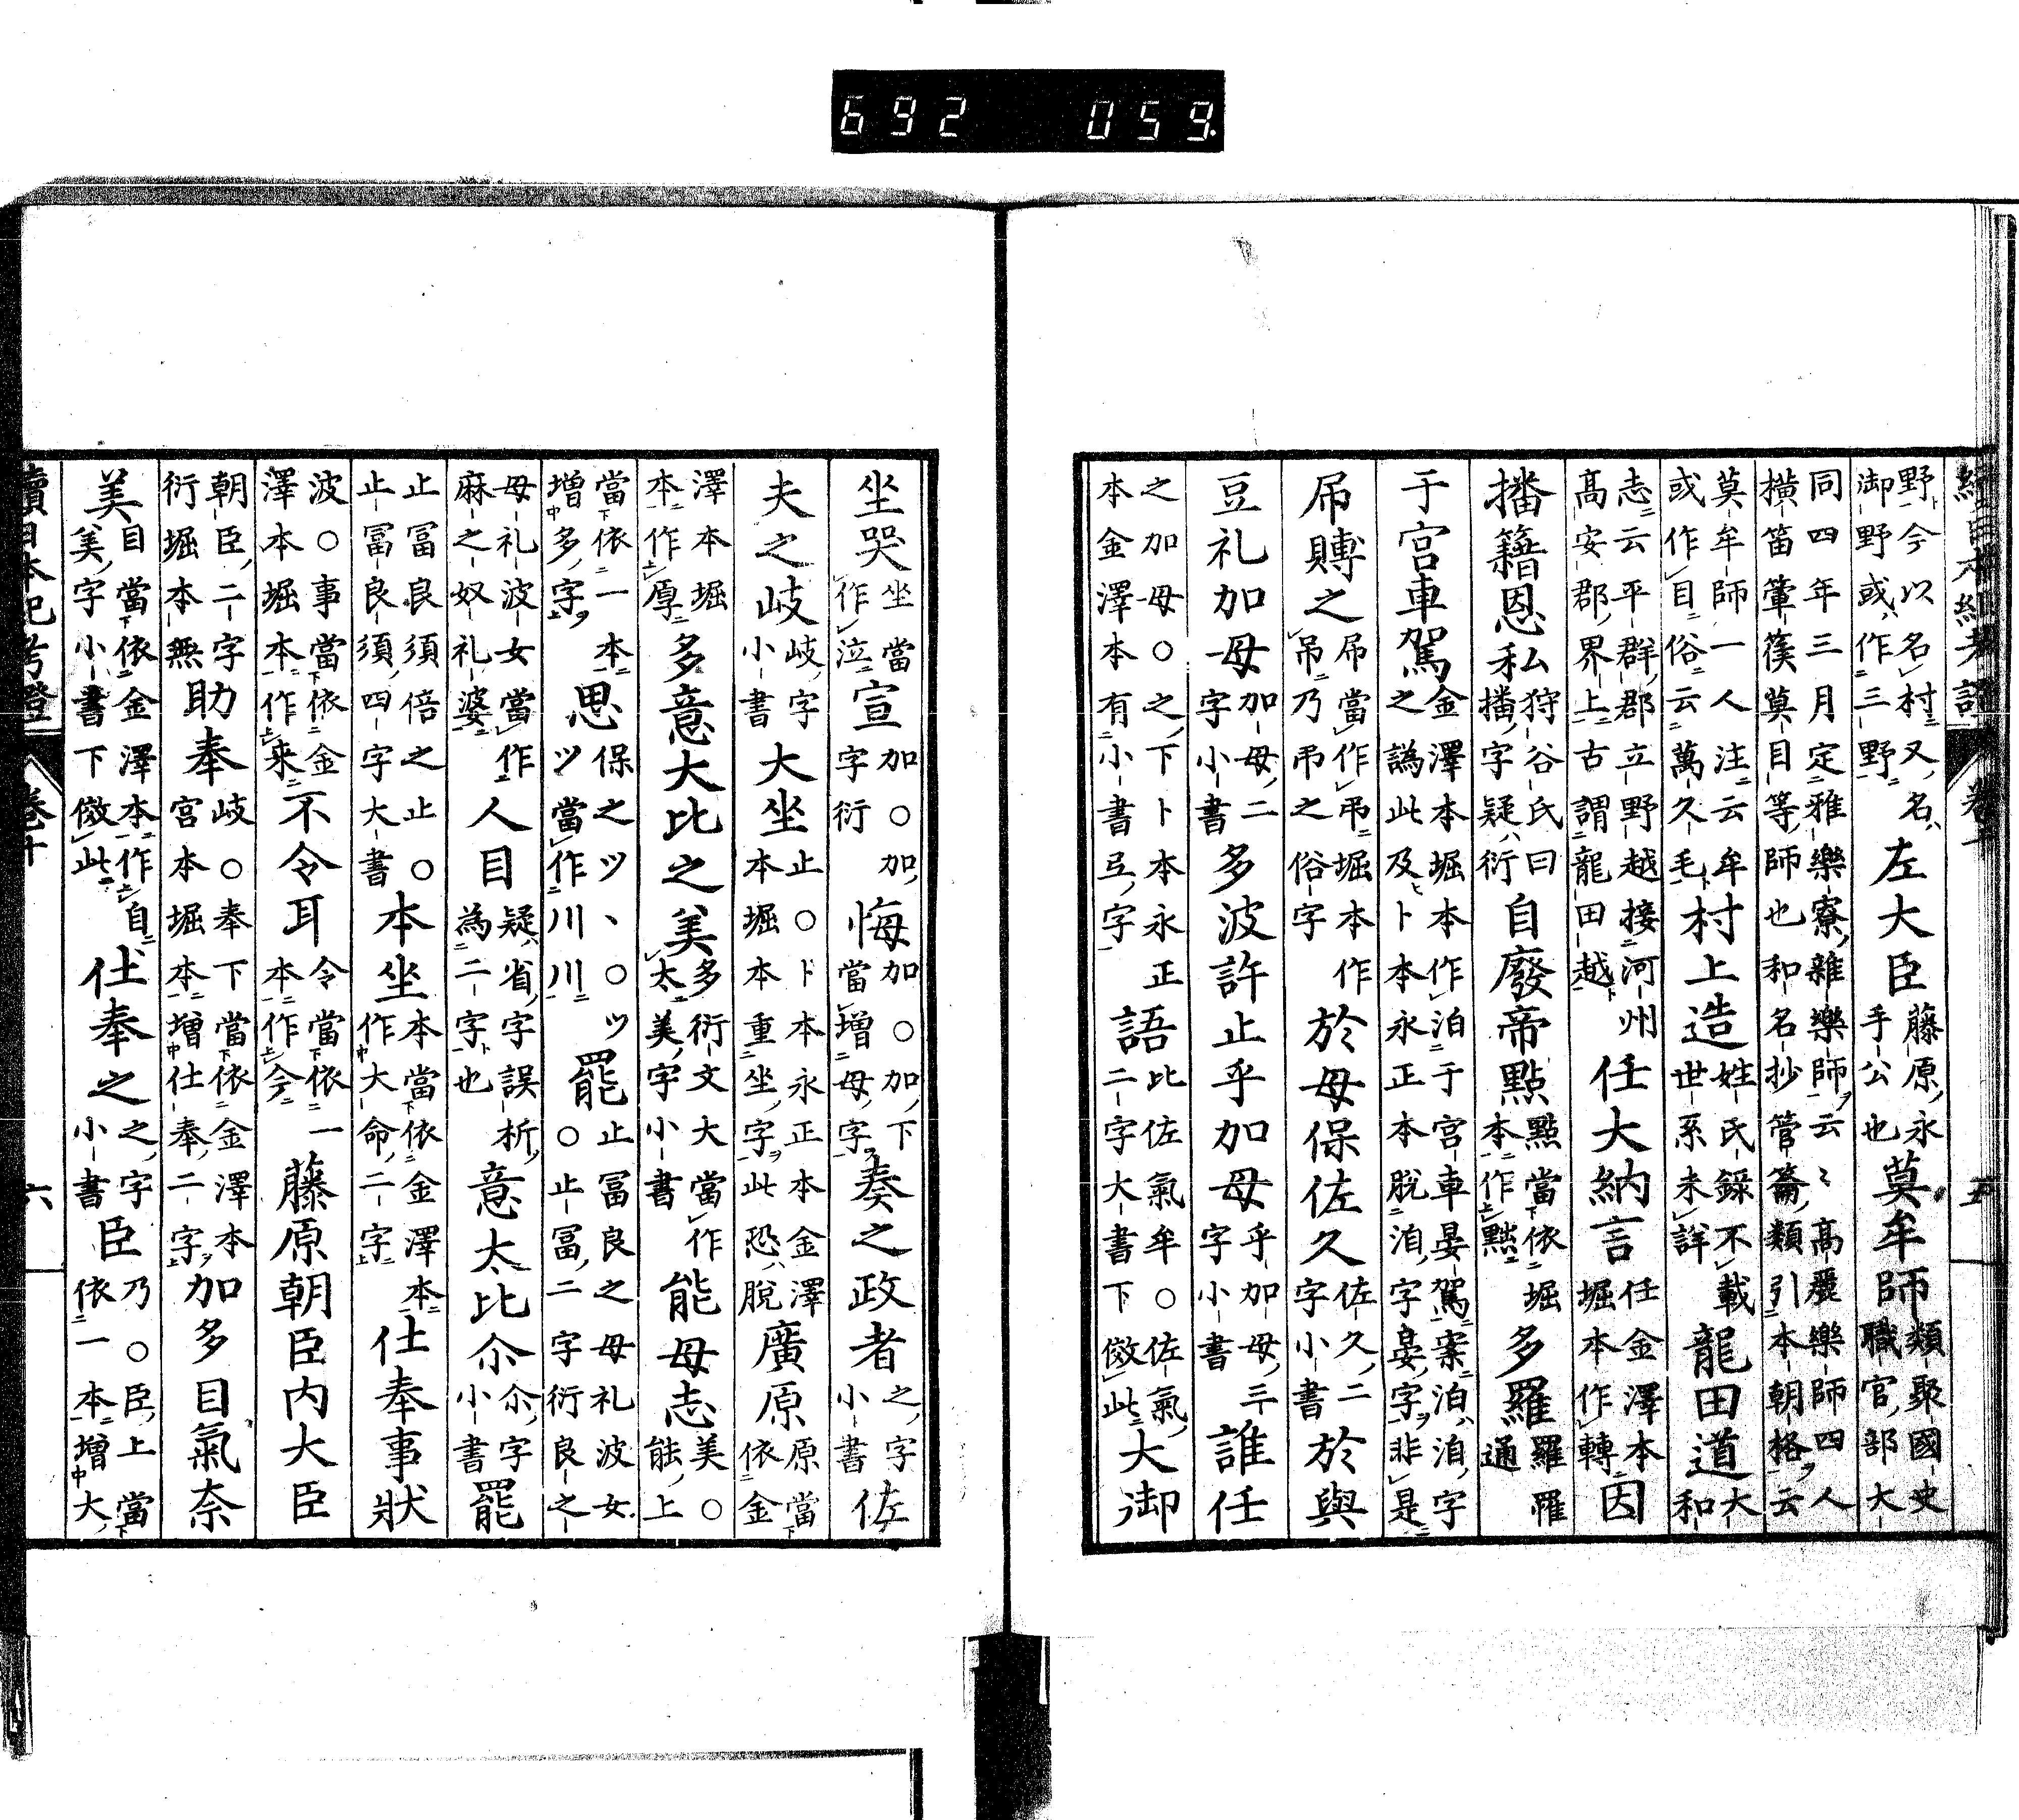 692 059
續日本紀考證 卷十 五
野今以名村又名御野或作三野左大臣藤原永手公也莫牟師類聚國史職官部大
同四年三月定雅樂寮雜樂師云〻高麗樂師四人橫笛篳篌莫目等師也和名抄管籥類引本朝格云
莫牟師一人注云牟或作目俗云萬久毛村上造姓氏錄不載世系未詳龍田道大和
志云平群郡立野越接河州高安郡界上古謂龍田越任大納言任金澤本堀本作轉因
播籍恩私狩谷氏曰播字疑衍自廢帝點點當依堀本作黜多羅羅罹通
于宮車駕金澤本堀本作洎于宮車晏駕案洎洎字之譌此及卜本永正本脫洎字晏字非是
吊賻之吊當作吊堀本作吊乃弔之俗字於母保佐久佐久二字小書於與
豆礼加母加母二字小書多波許止乎加母乎加母三字小書誰任
之加母○之下卜本永正本金澤本有小書弖字語比佐氣牟○佐氣二字大書下倣此大御
坐哭坐當作泣宣加○加字衍悔加○加下當增母字奏之政者之字小書佐
夫之岐岐字小書大坐止○卜本永正本金澤本堀本重坐字此恐脫廣原原當依金
澤本堀本作厚多意大比之美多衍文大當作太美字小書能母志美○能上
當依一本增多字思保之ツヽ○ツツ當作川川罷止冨良之母礼波女○止冨二字衍良之
母礼波女當作麻之奴礼婆人目疑省字誤析為二字也意太比尒尒字小書罷
止冨良須倍之止○止冨良須四字大書本坐本當依金澤本作大命二字仕奉事狀
波○事當依金澤本堀本作来不令耳令當依一本作今藤原朝臣内大臣
朝臣二字衍堀本無助奉岐○奉下當依金澤本宮本堀本增仕奉二字加多目氣奈
美目當依金澤本作自美字小書下倣此仕奉之之字小書臣乃○臣上當依一本增大
續日本紀考證 卷十 六